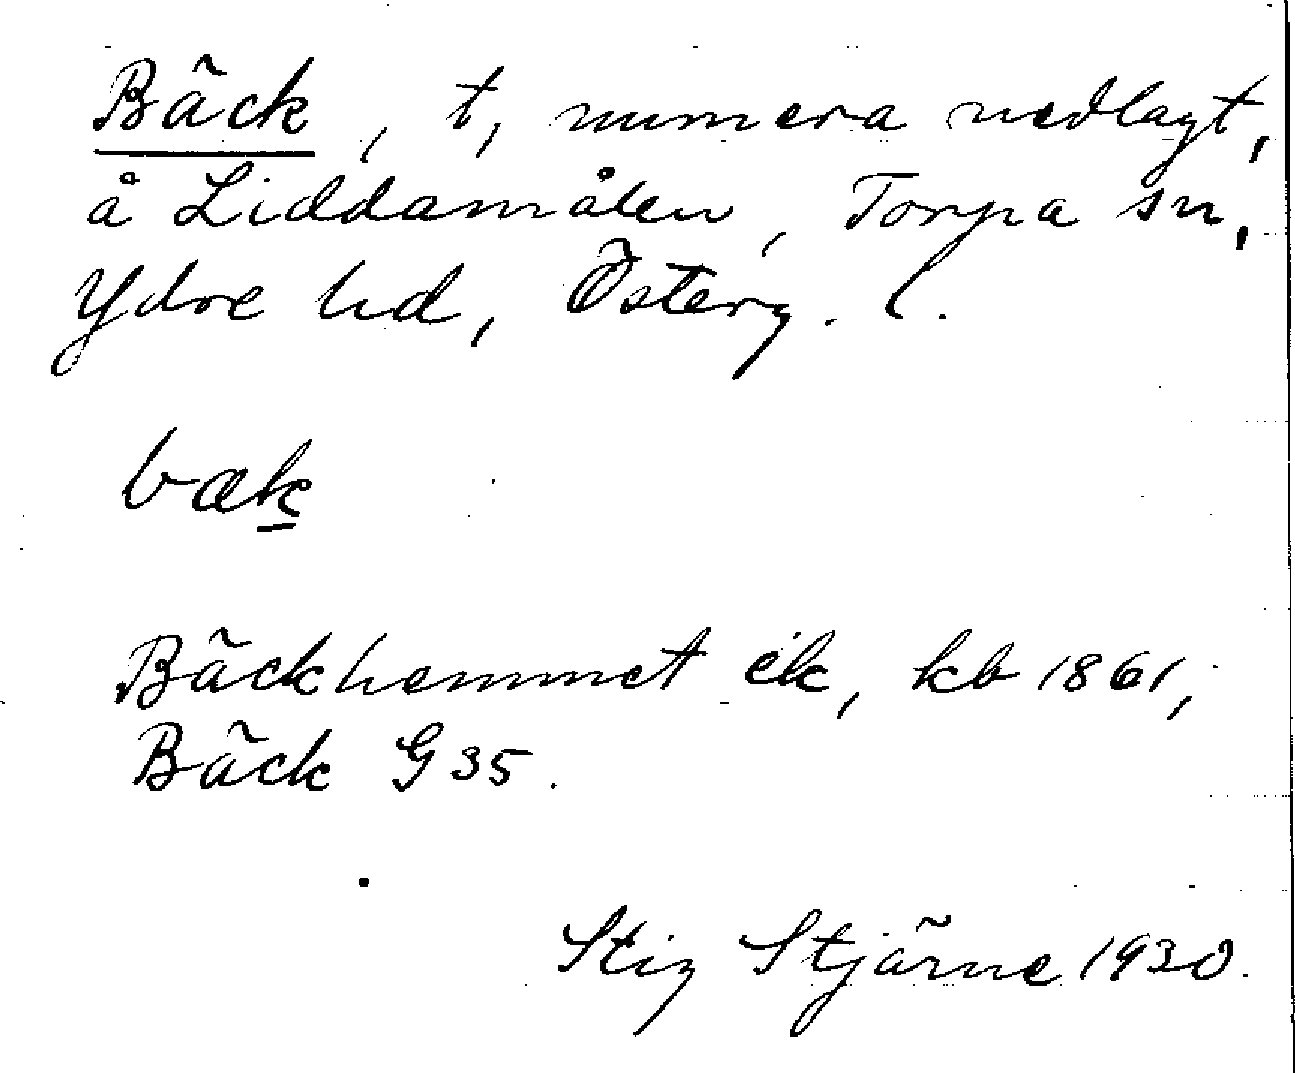 Bäck, t, numera nedlagt,
å Liddamålen, Torpa sn,
Ydre hd, Österg. l.
bæk
Bäckhemmet ek, kb 1861,
Bäck G 35.
Stig Stjärne 1930.